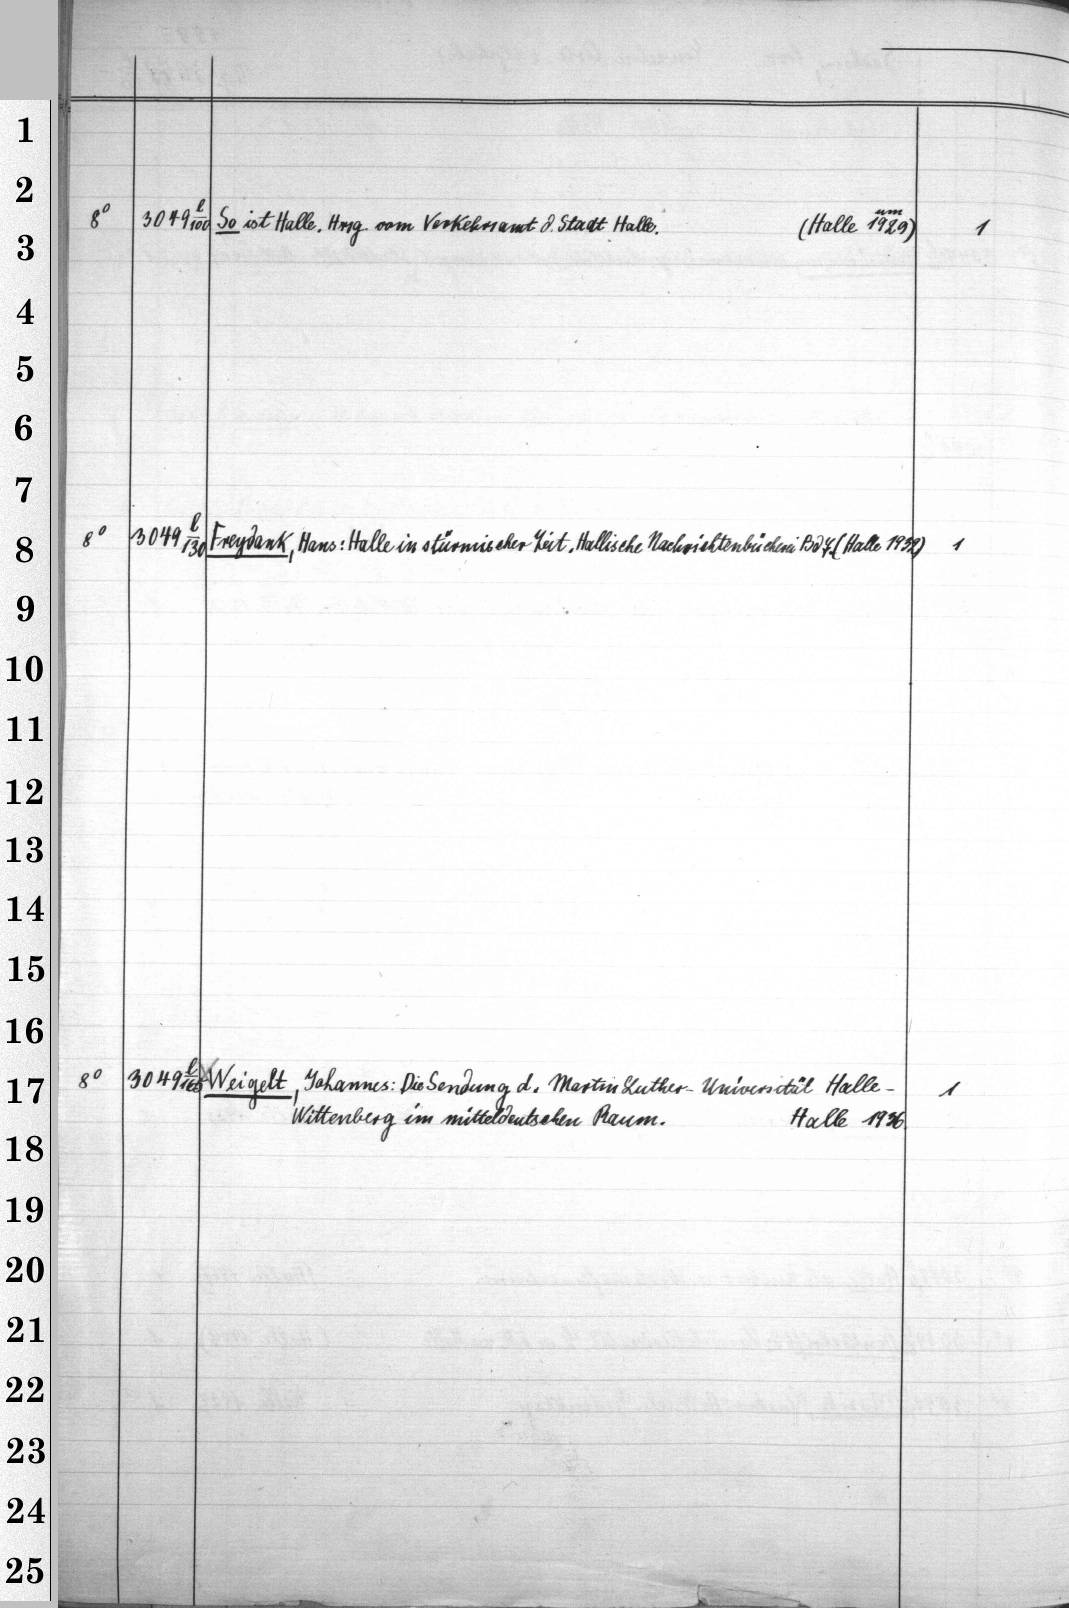 1
2
8° 3049 l/100 So ist Halle. Hrsg vom Verkehrsamt d. Stadt Halle. (Halle um 1929) 1
3
4
5
6
7
8° 3049 l/130 Freydank, Hans: Halle in stürmischer Zeit. Hallische Nachrichtenbücherei Bd 7. (Halle 1932) 1
8
9
10
11
12
13
14
15
16
8° 3049 l/160 Weigelt, Johannes: Die Sendung d. Martin Luther-Universität Halle- 1
17
Wittenberg im mitteldeutschen Raum. Halle 1936
18
19
20
21
22
23
24
25